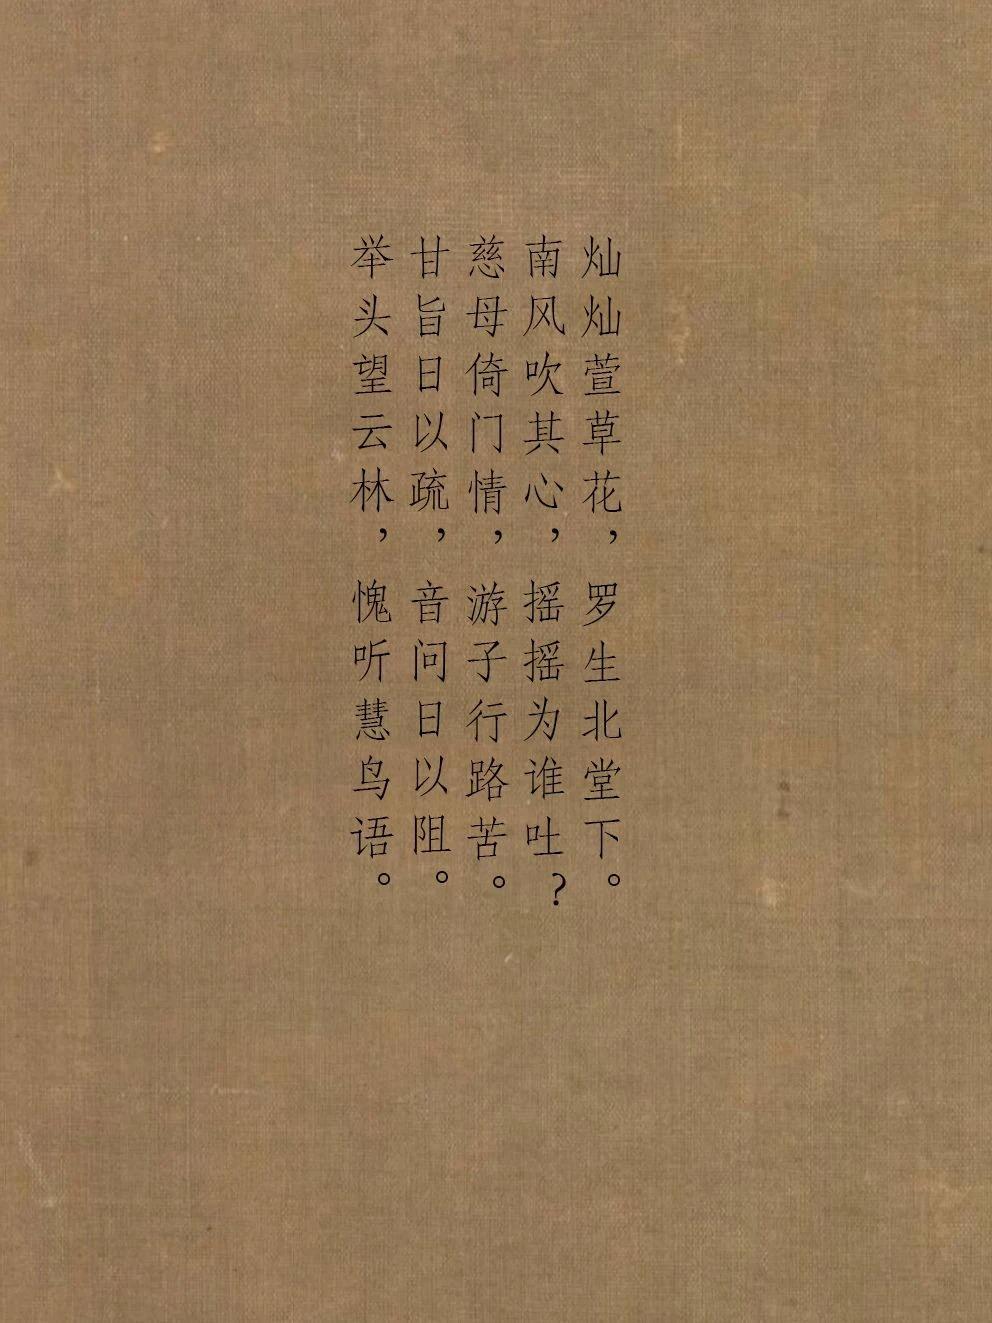 灿灿萱草花，罗生北堂下。
南风吹其心，摇摇为谁吐？
慈母倚门情，游子行路苦。
甘旨日以疏，音问日以阻。
举头望云林，愧听慧鸟语。